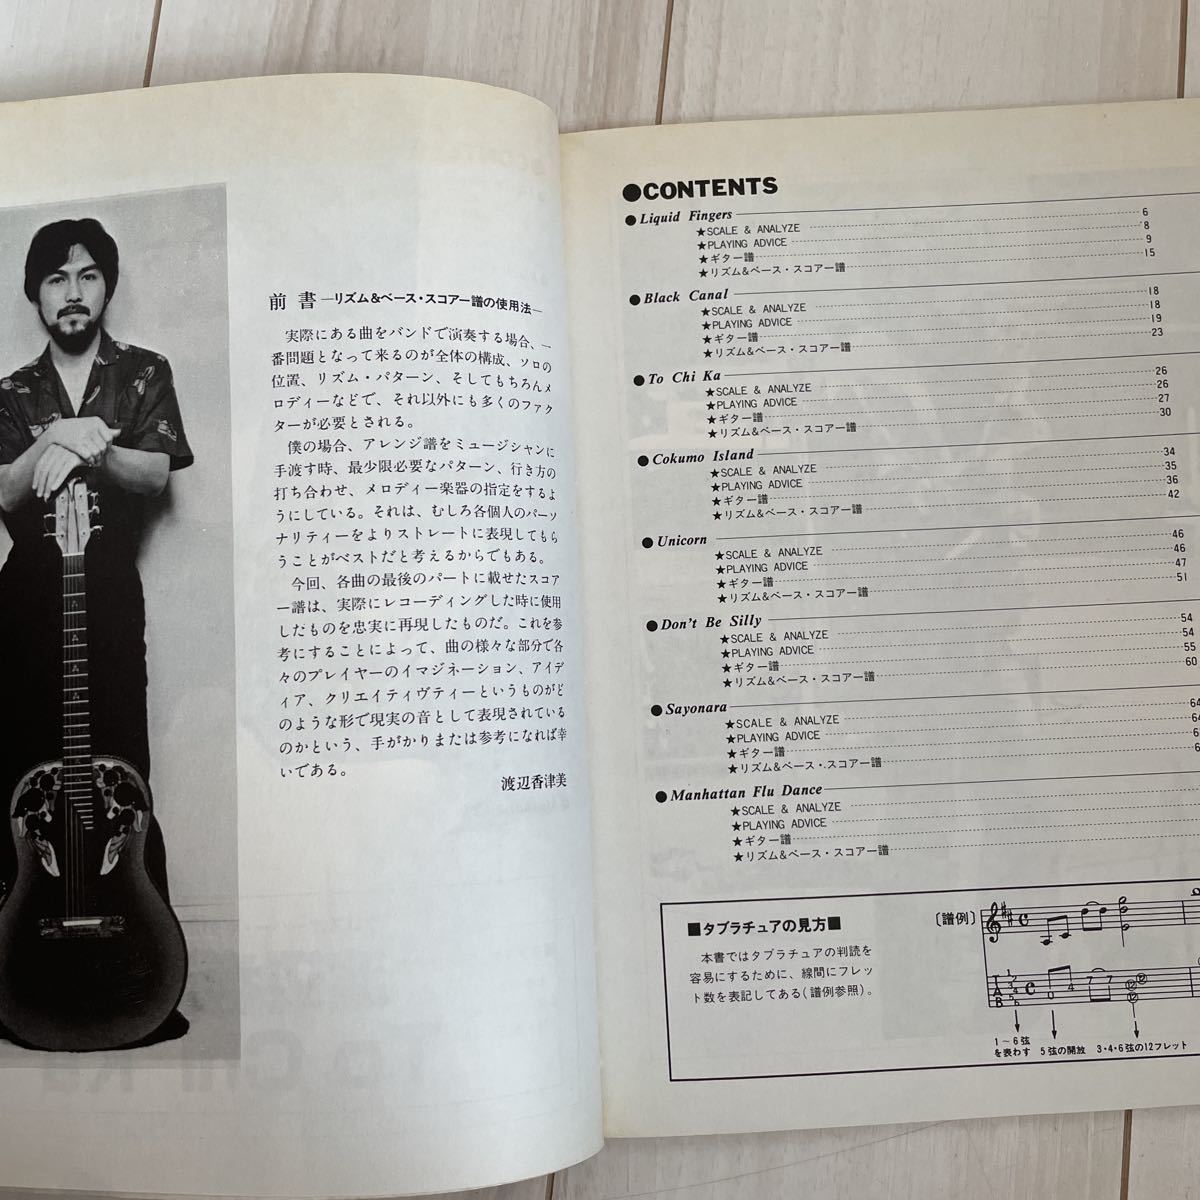 前書—リズム&ベース・スコアー譜の使用法—
実際にある曲をバンドで演奏する場合、一
番問題となって来るのが全体の構成、ソロの
位置、リズム・パターン、そしてもちろんメ
ロディーなどで、それ以外にも多くのファク
ターが必要とされる。
僕の場合、アレンジ譜をミュージシャンに
手渡す時、最少限必要なパターン、行き方の
打ち合わせ、メロディー楽器の指定をするよ
うにしている。それは、むしろ各個人のパーソ
ナリティーをよりストレートに表現してもら
うことがベストだと考えるからでもある。
今回、各曲の最後のパートに載せたスコア
ー譜は、実際にレコーディングした時に使用
したものを忠実に再現したものだ。これを参
考にすることによって、曲の様々な部分で各
々のプレイヤーのイマジネーション、アイデ
ィア、クリエイティヴティーというものがど
のような形で現実の音として表現されている
のかという、手がかりまたは参考になれば幸
いである。
渡辺香津美
●CONTENTS
●Liquid Fingers 6
★SCALE & ANALYZE 8
★PLAYING ADVICE 9
★ギター譜 15
★リズム&ベース・スコアー譜
●Black Canal 18
★SCALE & ANALYZE 18
★PLAYING ADVICE 19
★ギター譜 23
★リズム&ベース・スコアー譜
●To Chi Ka 26
★SCALE & ANALYZE 26
★PLAYING ADVICE 27
★ギター譜 30
★リズム&ベース・スコアー譜
●Cokumo Island 34
★SCALE & ANALYZE 35
★PLAYING ADVICE 36
★ギター譜 42
★リズム&ベース・スコアー譜
●Unicorn 46
★SCALE & ANALYZE 46
★PLAYING ADVICE 47
★ギター譜 51
★リズム&ベース・スコアー譜
●Don't Be Silly 54
★SCALE & ANALYZE 54
★PLAYING ADVICE 55
★ギター譜 60
★リズム&ベース・スコアー譜
●Sayonara 64
★SCALE & ANALYZE 64
★PLAYING ADVICE
★ギター譜
★リズム&ベース・スコアー譜
●Manhattan Flu Dance
★SCALE & ANALYZE
★PLAYING ADVICE
★ギター譜
★リズム&ベース・スコアー譜
■タブラチュアの見方■
本書ではタブラチュアの判読を
容易にするために、線間にフレッ
ト数を表記してある(譜例参照)。
〔譜例〕
TAB
1～6弦
を表わす
5弦の開放
3・4・6弦の12フレット